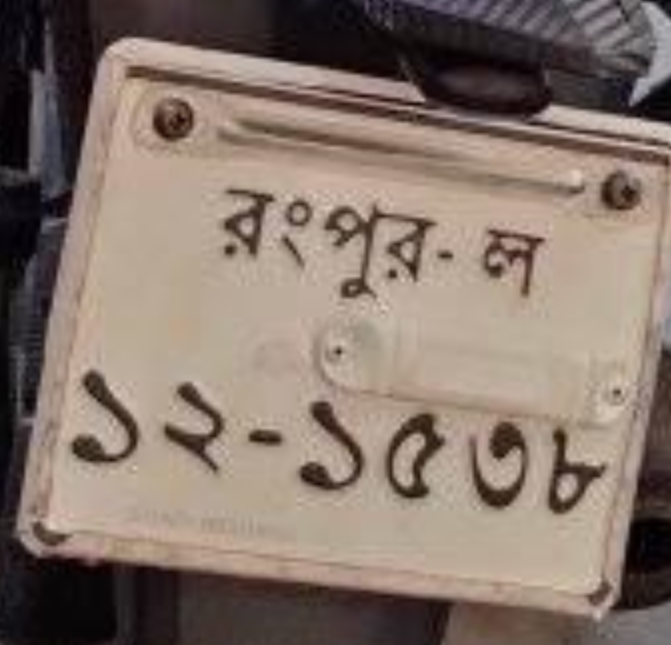 রংপুর- ল
১২-১৫৩৮